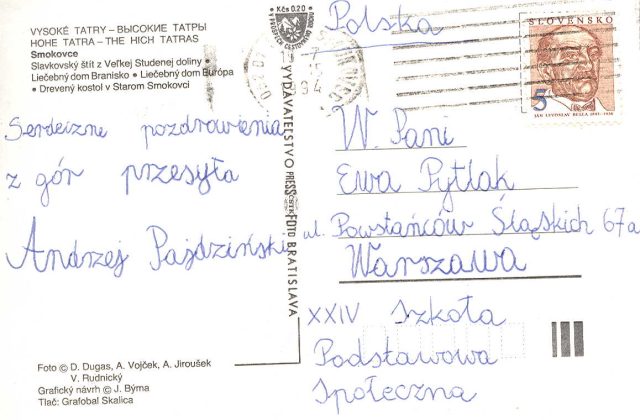 VYSOKÉ TATRY – ВЫСОКИЕ ТАТРЫ
HOHE TATRA – THE HICH TATRAS
Smokovce
Slavkovský štít z Veľkej Studenej doliny •
Liečebný dom Branisko • Liečebný dom Európa
• Drevený kostol v Starom Smokovci
Serdeczne pozdrowienia
z gór przesyła
Andrzej Pajdziński
Foto © D. Dugas, A. Vojček, A. Jiroušek
V. Rudnický
Grafický návrh © J. Býma
Tlač: Grafobal Skalica
Kčs 0.20
VYDAVATEĽSTVO PRESSFOTO BRATISLAVA
Polska
SLOVENSKO
5
JÁN LEVOSLAV BELLA 1843-1936
W. Pani
Ewa Pytlak
ul. Powstańców Śląskich 67a
Warszawa
XXIV Szkoła
Podstawowa
Społeczna